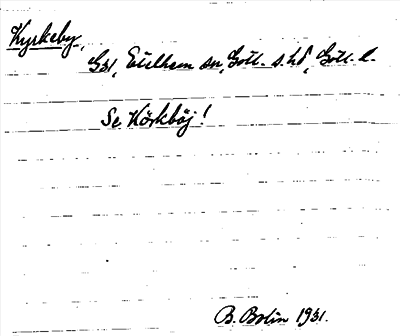 Kyrkeby,
G31, Etelhem sn, Gotl. s. hd, Gotl. l.
Se Körkböj!
B. Bolin 1931.